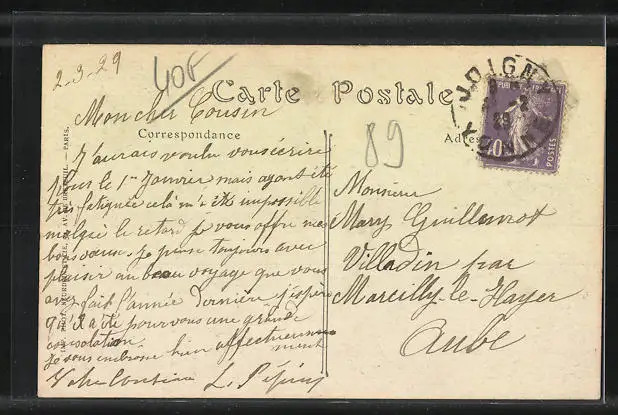 2-3-29
40F
Carte Postale
Mon cher Cousin
Correspondance
89
J'aurais voulu vous écrire
pour le 1er Janvier mais ayant été
très fatiguée cela m'a été impossible
malgré le retard je vous offre mes
bons vœux. Je pense toujours avec
plaisir au beau voyage que vous
avez fait l'année dernière j'espère
qu'il a été pour vous une grande
consolation.
Je vous embrasse bien affectueuse
ment
Votre Cousine L.
Monsieur
Mary Guillemot
Villadin par
Marcilly-le-Hayer
Aube
JOIGNY
YONNE
40
POSTES
PARIS.